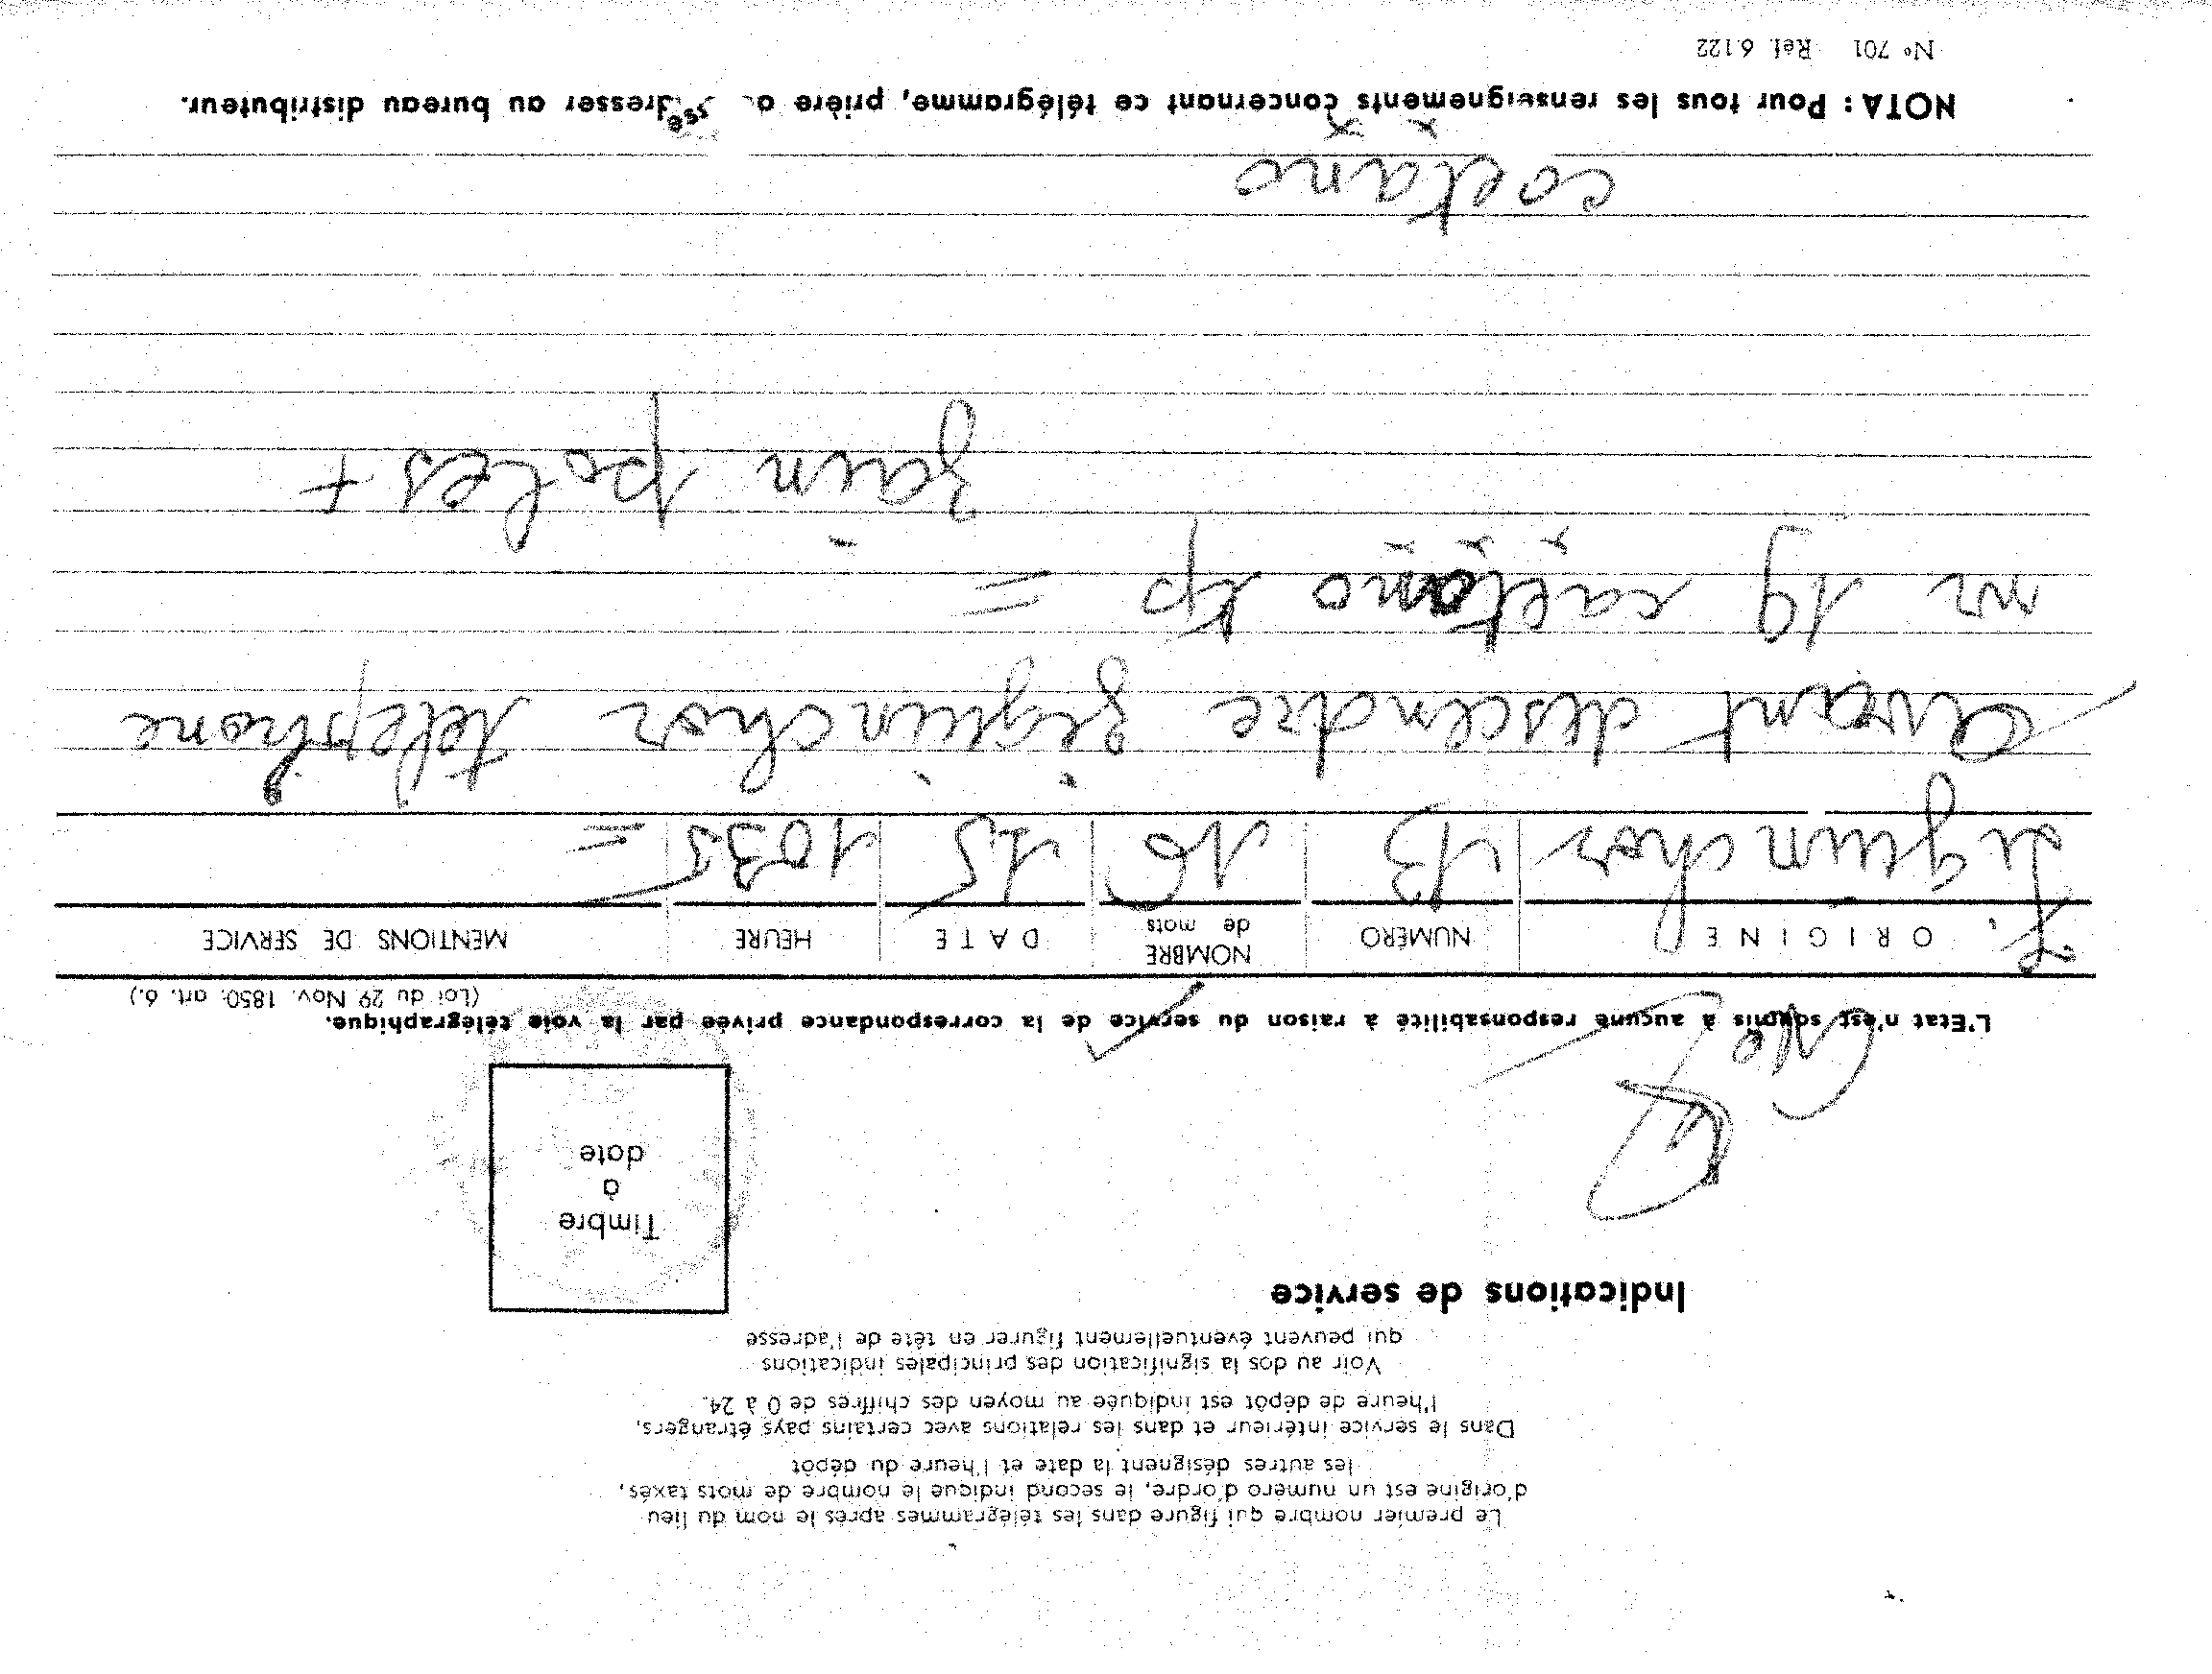 Le premier nombre qui figure dans les télégrammes après le nom du lieu
d'origine est un numéro d'ordre, le second indique le nombre de mots taxés,
les autres désignent la date et l'heure du dépôt
Dans le service intérieur et dans les relations avec certains pays étrangers,
l'heure de dépôt est indiquée au moyen des chiffres de 0 à 24.
Voir au dos la signification des principales indications
qui peuvent éventuellement figurer en tête de l'adresse
Indications de service
Timbre
à
date
L'Etat n'est soumis à aucune responsabilité à raison du service de la correspondance privée par la voie télégraphique.
(Loi du 29 Nov. 1850, art. 6.)
ORIGINE NUMÉRO NOMBRE de mots DATE HEURE MENTIONS DE SERVICE
ziguinchor 13 16 15 1035 =
Avant descendre ziguinchor telephone
sur 19 caetano tp =
+
caetano
NOTA : Pour tous les renseignements concernant ce télégramme, prière s'adresser au bureau distributeur.
N° 701 Ref. 6.122